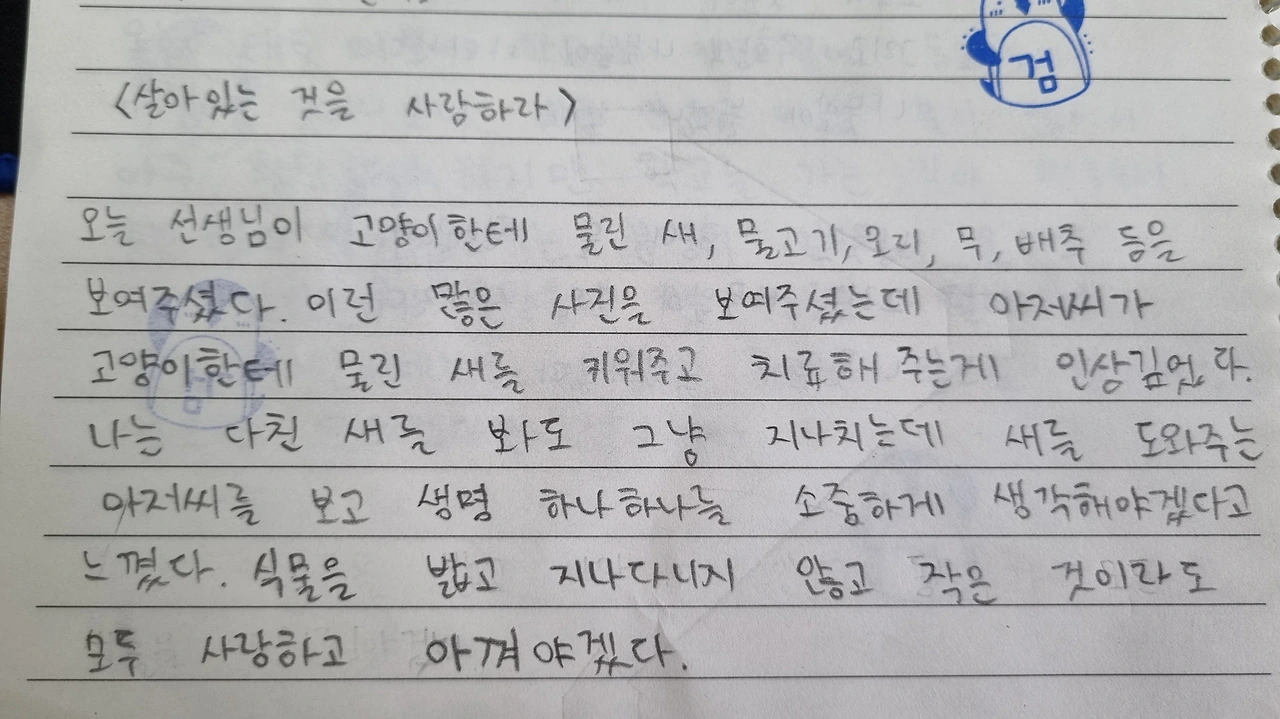 검
<살아있는 것을 사랑하라>
오늘 선생님이 고양이한테 물린 새, 물고기, 오리, 무, 배추 등을
보여주셨다. 이런 많은 사진을 보여주셨는데 아저씨가
고양이한테 물린 새를 키워주고 치료해 주는게 인상깊었다.
나는 다친 새를 봐도 그냥 지나치는데 새를 도와주는
아저씨를 보고 생명 하나하나를 소중하게 생각해야겠다고
느꼈다. 식물을 밟고 지나다니지 않고 작은 것이라도
모두 사랑하고 아껴야겠다.